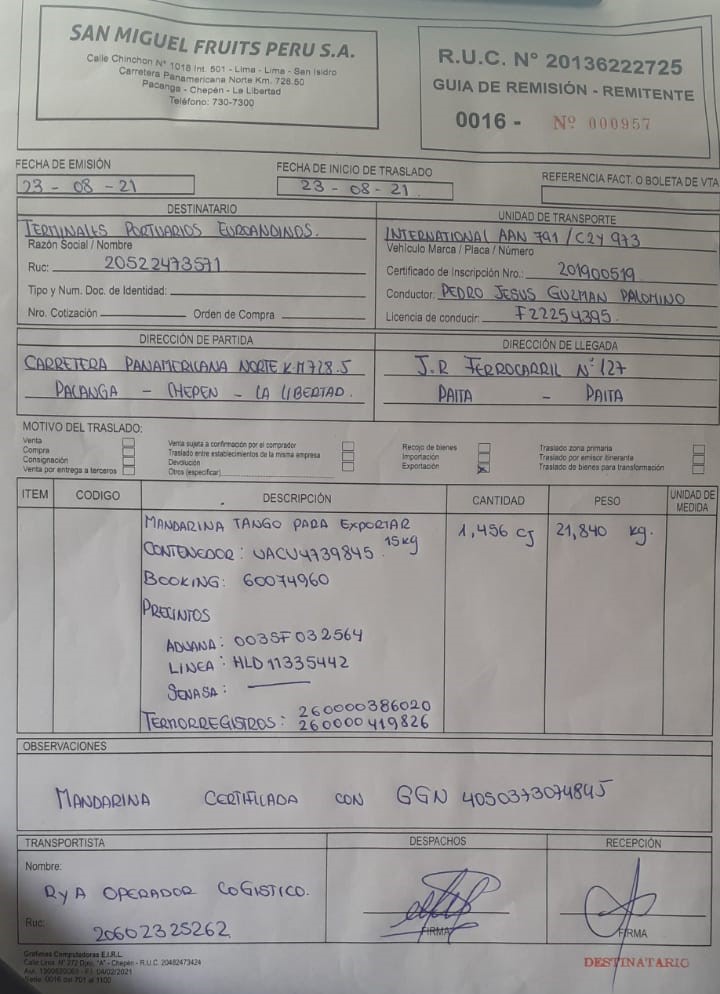 SAN MIGUEL FRUITS PERU S.A.
Calle Chinchon N° 1018 Int. 501 - Lima - Lima - San Isidro
Carretera Panamericana Norte Km. 728.50
Pacanga - Chepén - La Libertad
Teléfono: 730-7300
R.U.C. N° 20136222725
GUIA DE REMISIÓN - REMITENTE
0016 - Nº 000957
FECHA DE EMISIÓN
23 - 08 - 21
FECHA DE INICIO DE TRASLADO
23 - 08 - 21.
REFERENCIA FACT. O BOLETA DE VTA
DESTINATARIO
TERMINALES PORTUARIOS EUROANDINOS.
Razón Social / Nombre
Ruc: 20522473571
Tipo y Num. Doc. de Identidad:
Nro. Cotización Orden de Compra
UNIDAD DE TRANSPORTE
INTERNATIONAL AAN 791 / C2Y 973
Vehículo Marca / Placa / Número
Certificado de Inscripción Nro.: 201900519
Conductor: PEDRO JESUS GUZMAN PALOMINO
Licencia de conducir: F22254395.
DIRECCIÓN DE PARTIDA
CARRETERA PANAMERICANA NORTE KM728.5
PACANGA - CHEPEN - LA LIBERTAD.
DIRECCIÓN DE LLEGADA
J.R FERROCARRIL N° 127
PAITA - PAITA
MOTIVO DEL TRASLADO:
Venta
Compra
Consignación
Venta por entrega a terceros
Venta sujeta a confirmación por el comprador
Traslado entre establecimientos de la misma empresa
Devolución
Otros (especificar)
Recojo de bienes
Importación
Exportación X
Traslado zona primaria
Traslado por emisor itinerante
Traslado de bienes para transformación
ITEM CODIGO DESCRIPCIÓN CANTIDAD PESO UNIDAD DE MEDIDA
MANDARINA TANGO PARA EXPORTAR 1,456 CJ 21,840 kg.
15kg
CONTENEDOR: UACU4739845.
BOOKING: 60074960
PRECINTOS
ADUANA: 003SF032564
LINEA: HLD11335442
SENASA: ———
TERMORREGISTROS: 260000386020
260000419826
OBSERVACIONES
MANDARINA CERTIFICADA CON GGN 4050373074845
TRANSPORTISTA
Nombre:
RyA OPERADOR LOGISTICO.
Ruc: 20602325262
DESPACHOS
FIRMA
RECEPCIÓN
FIRMA
DESTINATARIO
Graficas Computadoras E.I.R.L.
Calle Lima N° 272 Dpto. "A" - Chepén - R.U.C. 20482473424
Serie: 0016 del 701 al 1100